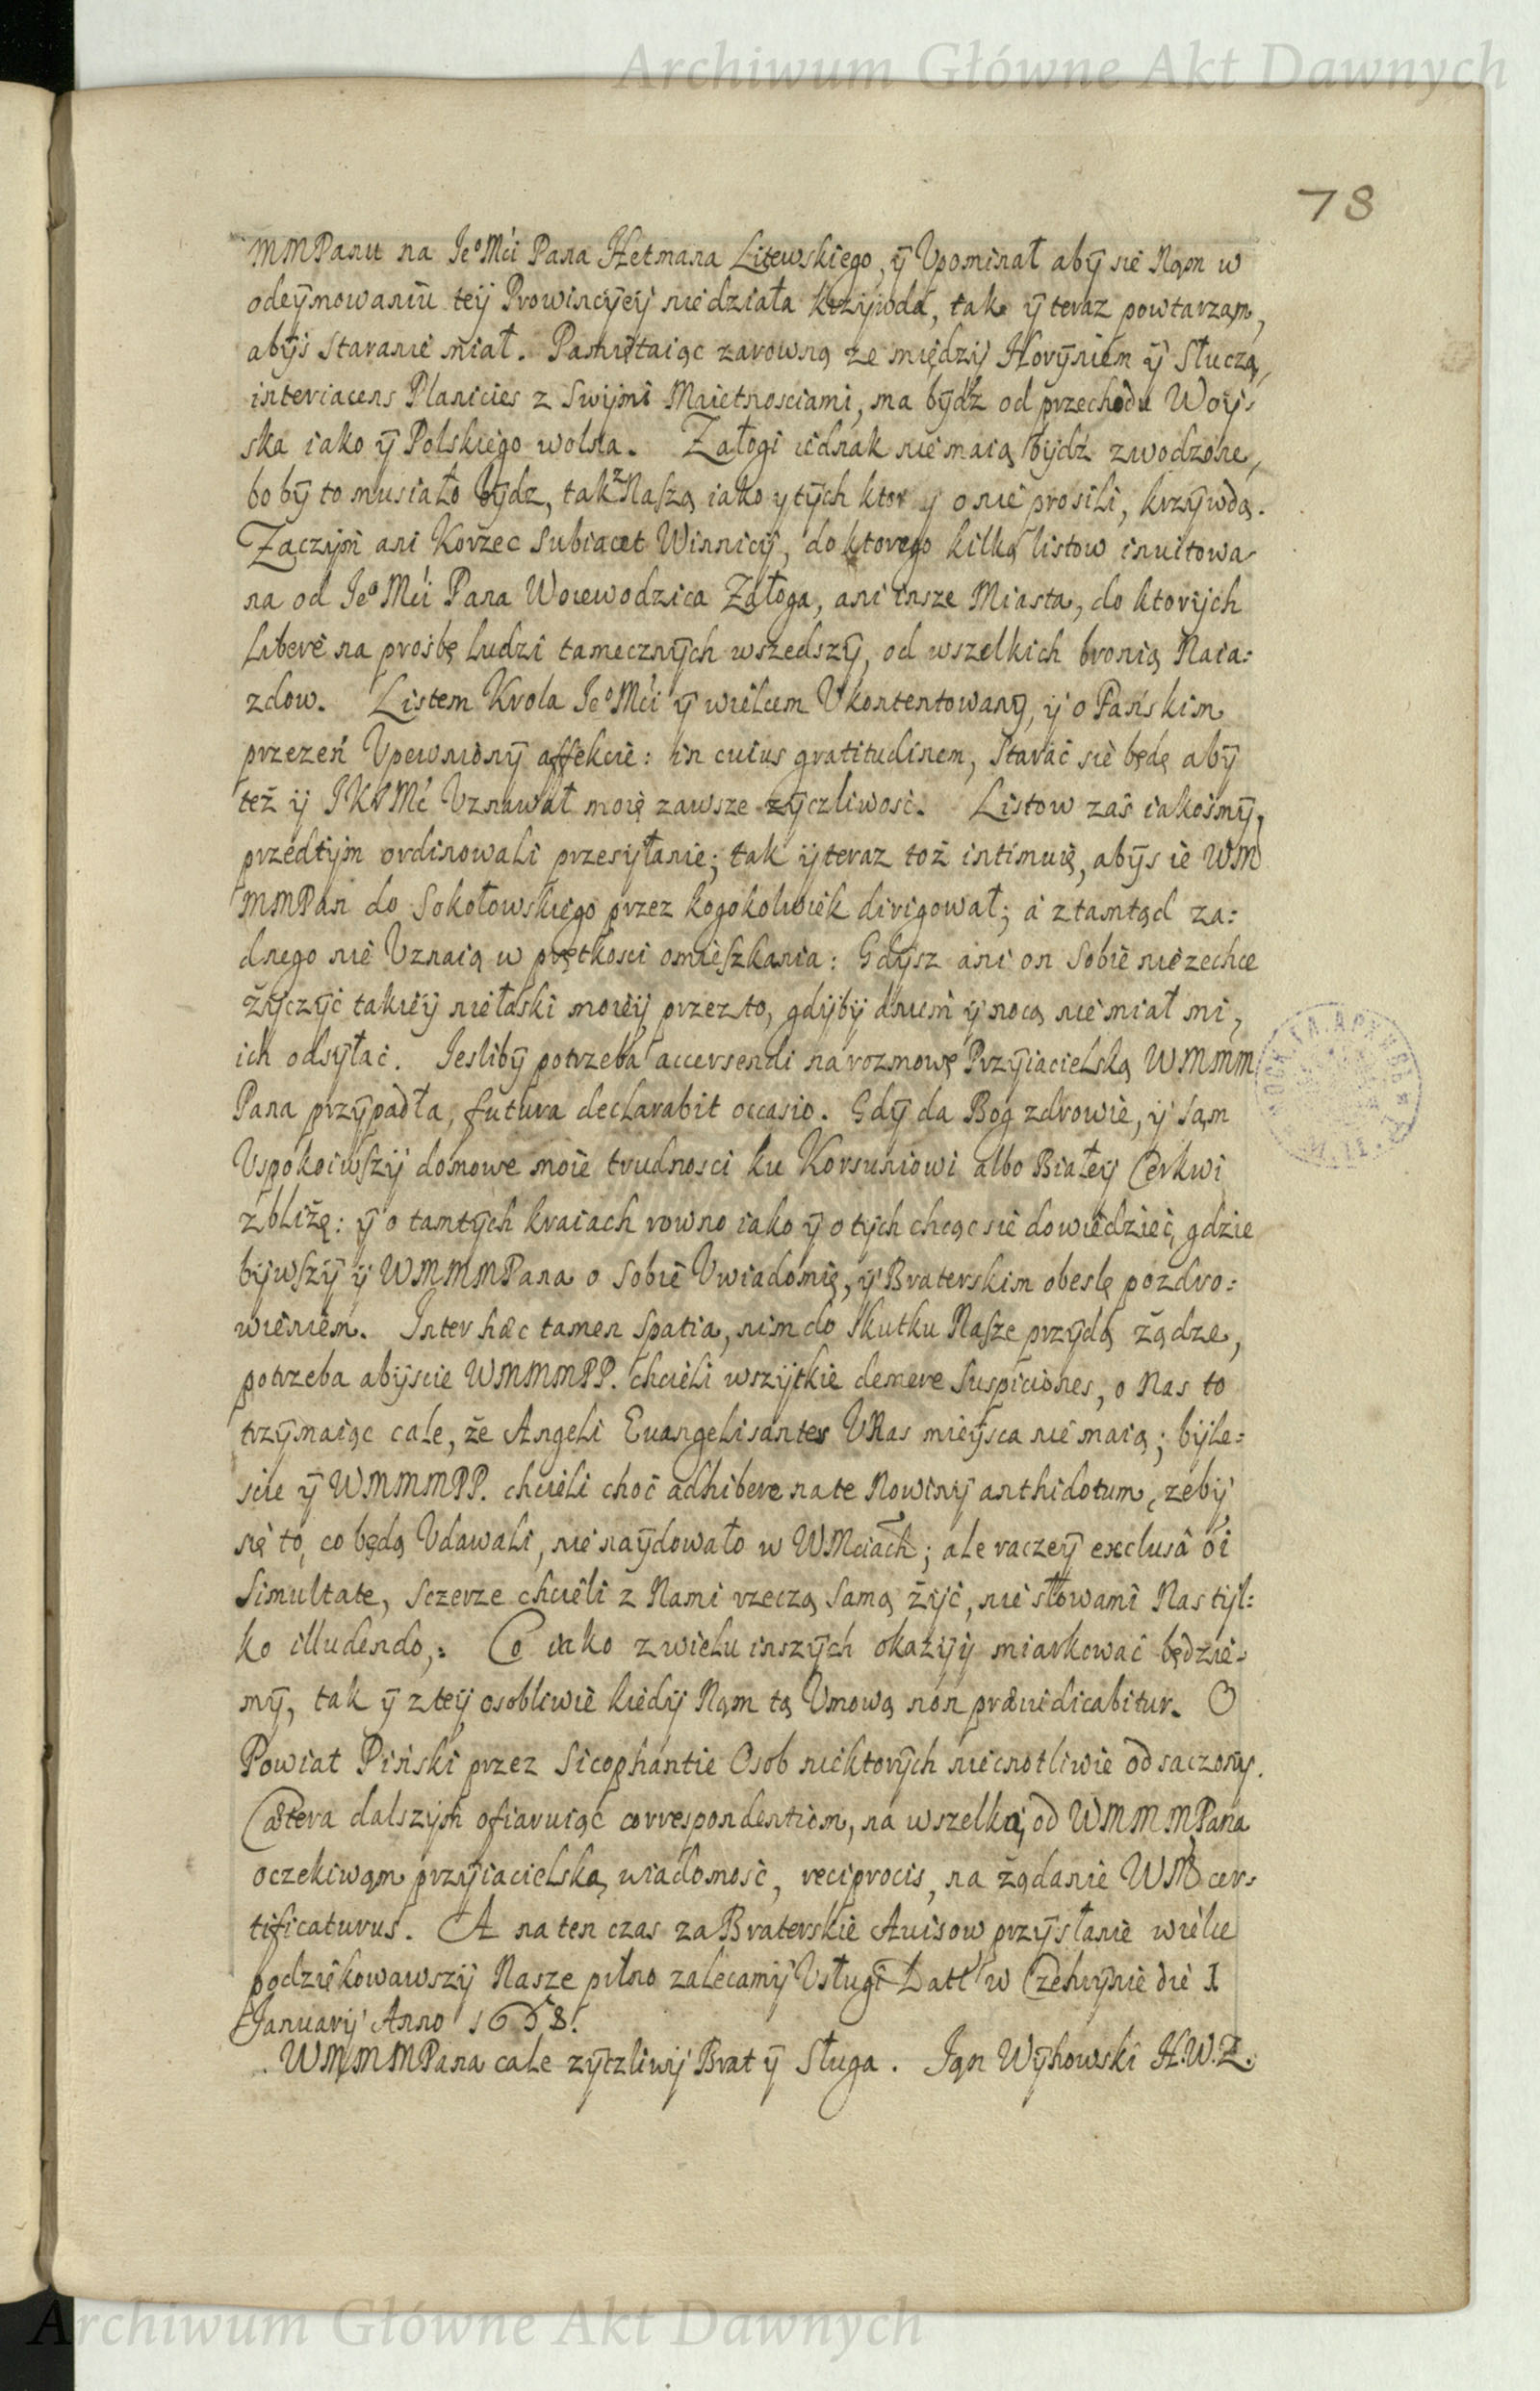 Archiwum Główne Akt Dawnych
78
MMPanu na Ieº Mći Pana Hetmana Litewskiego, ÿ Vpominał abÿ sie Nąm w
odeÿmowaniu teÿ Prowincÿeÿ nie działa krzÿwda, tak ÿ teraz powtarzam,
abÿs staranie miał. Pamiętaiąc zarowną ze międzÿ Horÿniem ÿ Słuczą,
interiacens Planicies z Swÿmi Maietnosciami, ma bÿdź od przechodu Woÿ:
ska iako ÿ Polskiego wolna. Załogi iednak nie maią bÿdź zwodzone,
bo bÿ to musiało bÿdz, tak z Naszą iako y tÿch ktorÿ o nie prosili, krzÿwdą.
Zaczÿm ani Korzec Subiacet Winnicÿ, do ktorego kilką listow inuitowa
na od Ieº Mći Pana Woiewodzica Załoga, ani insze Miasta, do ktorÿch
Libere na prosbę ludzi tamecznÿch wszedszÿ, od wszelkich bronią Naia:
zdow. Listem Krola Ieº Mći ÿ wielcem Vkontentowanÿ, ÿ o Pańskim
przezeń Vpewnionÿ affekcie: in cuius gratitudinem, starać sie będę abÿ
też ÿ IKrMć Vznawał moię zawsze zÿczliwosć. Listow zaś iakosmÿ,
przedtÿm ordinowali przesÿłanie; tak ÿ teraz toż intimuię, abÿs ie WM
MMPan do Sokołowskiego przez kogokolwiek dirigował; a ztamtąd za:
dnego nie Vznaią w prętkosci omieszkania: Gdÿsz ani on Sobie nie zechce
żÿczÿć takieÿ niełaski moieÿ przez to, gdÿbÿ dniem ÿ nocą nie miał mi,
ich odsÿłać. Iesliby potrzeba accersendi na rozmowę Przÿiacielską WMMM
Pana przÿpadła, futura declarabit occasio. Gdÿ da Bog zdrowie, ÿ sąm
Vspokoiwszÿ domowe moie trudnosci ku Korsuniowi albo Białeÿ Cerkwi
zbliżę: ÿ o tamtÿch kraiach rowno iako ÿ o tÿch chcąc sie dowiedzieć, gdzie
bÿwszÿ ÿ WMMMPana o Sobie Vwiadomię, ÿ Braterskim obeslę pozdro:
wieniem. Inter hæc tamen spatia, nim do skutku Nasze przÿdą żądze,
potrzeba abÿscie WMMMPP. chcieli wszÿtkie demere Suspiciones, o Nas to
trzÿmaiąc cale, że Angeli Euangelisantes VNas mieÿsca nie maią; bÿle:
scie ÿ WMMMPP. chcieli choć adhibere na te Nowinÿ anthidotum, zebÿ
się to, co będą Vdawali, nie naÿdowało w WMciach; ale raczeÿ exclusâ oi
Simultate, Sczerze chcieli z Nami rzeczą samą żÿć, nie słowami Nas tÿl:
ko illudendo,: Co iako z wielu inszÿch okaziÿ miarkować będzie:
mÿ, tak ÿ z teÿ osobliwie kiedÿ Nąm tą Vmową non præiudicabitur. O
Powiat Piński przez Sicophantie Osob niektorÿch niecnotliwie odsaczonÿ.
Cætera dalszÿm ofiaruiąc correspondentiom, na wszelką od WMMMPana
oczekiwąm przÿiacielską wiadomosć, reciprocis, na żądanie WM cer:
tificaturus. A na ten czas za Braterskie Auisow przÿsłanie wielce
podziękowawszÿ Nasze pilno zalecamÿ Vsługi Datt w Czehrÿnie die I
Januarÿ Anno 1658.
WMMMPana cale zÿczliwÿ Brat ÿ Sługa. Iąn Wÿhowski H.W.Z.
Archiwum Główne Akt Dawnych